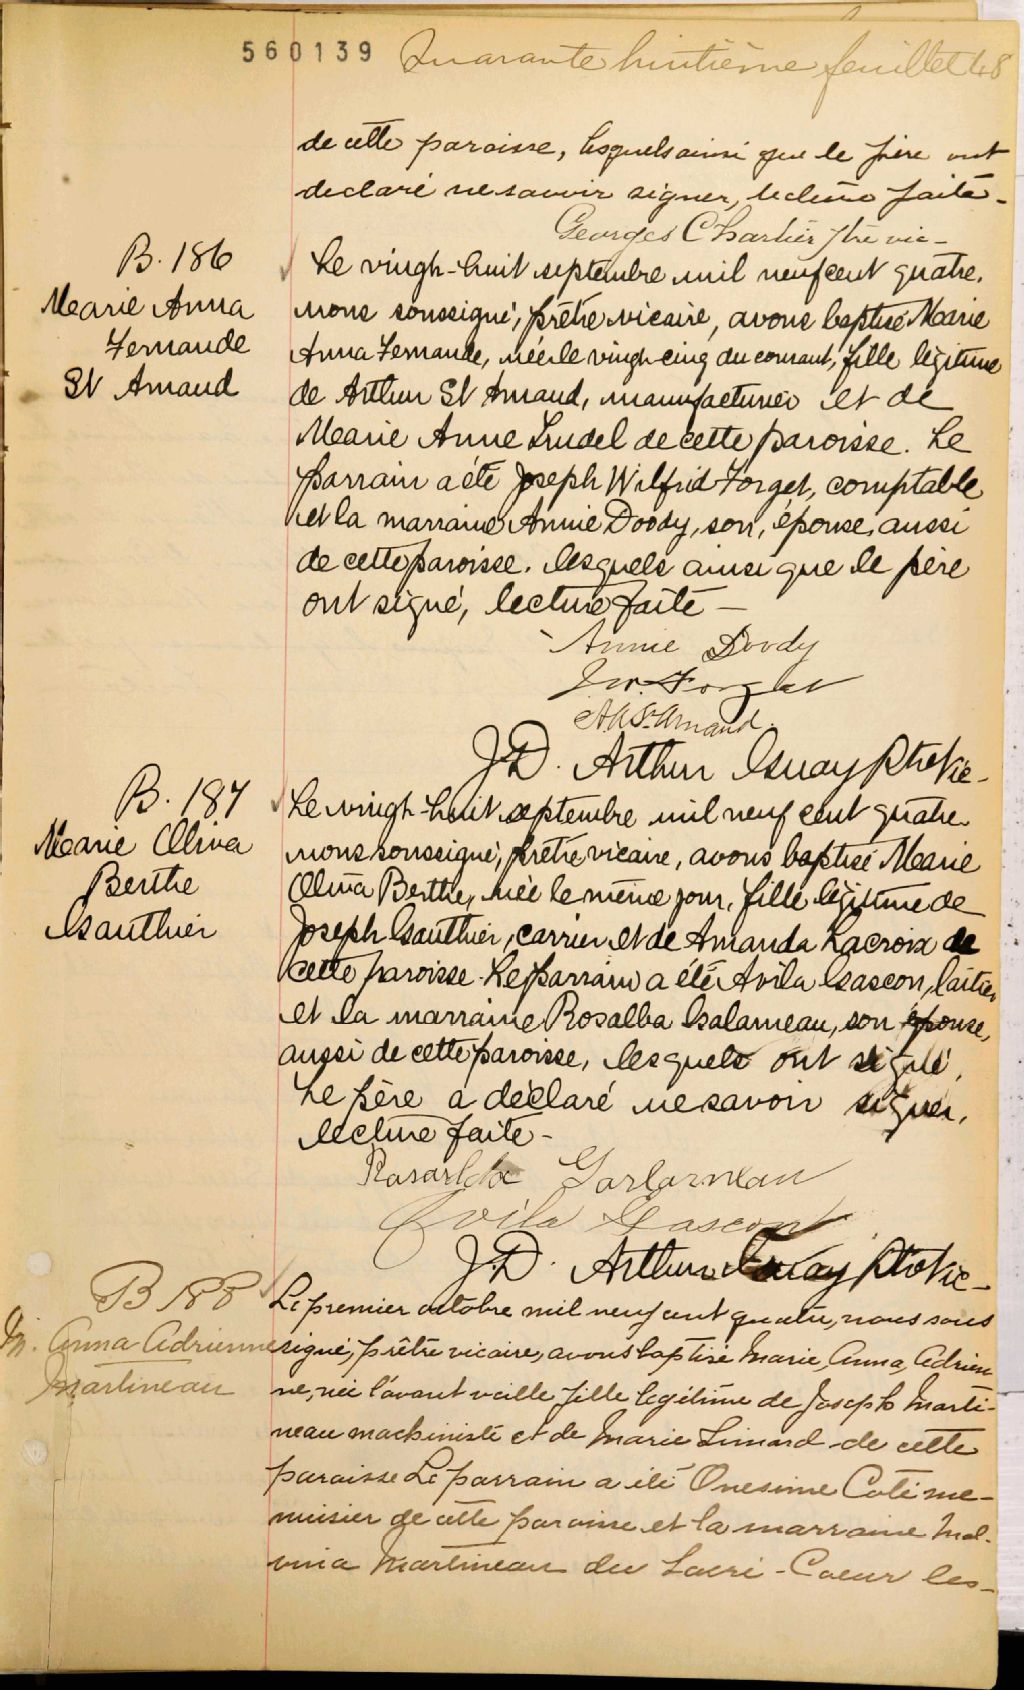 560139 Quarante huitième feuillet 48
de cette paroisse, lesquels ainsi que le père ont
declaré ne savoir signer, lecture faite.
Georges Chartier ptre vic-
B. 186
Marie Anna
Fernande
St Arnaud
Le vingt-huit septembre mil neuf cent quatre.
nous soussigné, prêtre vicaire, avons baptisé Marie
Anna Fernande, née le vingt-cinq du courant, fille légitime
de Arthur St Arnaud, manufacturier et de
Marie Anne Trudel de cette paroisse. Le
parrain a été Joseph Wilfrid Forget, comptable
et la marraine Annie Doody, son, épouse, aussi
de cette paroisse. lesquels ainsi que le père
ont signé, lecture faite —
Annie Doody
J. W. Forget
A. A. St. Arnaud.
J.D. Arthur Guay Ptre Vic-
B. 187
Marie Oliva
Berthe
Gauthier
Le vingt-huit septembre mil neuf cent quatre.
nous soussigné, prêtre vicaire, avons baptisé Marie
Oliva Berthe, née le même jour, fille légitime de
Joseph Gauthier, carrier et de Amanda Lacroix de
cette paroisse. Le parrain a été Avila Gascon, laitier
et la marraine Rosalba Galarneau, son épouse,
aussi de cette paroisse, lesquels ont signé.
Le père a déclaré ne savoir signer,
lecture faite -
Galarneau
Avila Gascon
J.D. Arthur Guay Ptre Vic-
B 188
M. Anna Adrienne
Martineau
Le premier octobre mil neuf cent quatre, nous sous
signé, prêtre vicaire, avons baptisé Marie, Anna, Adrien
ne, née l'avant veille fille legitime de Joseph Marti-
neau machiniste et de Marie Simard de cette
paroisse Le parrain a été Onesime Coté me-
nuisier de cette paroisse et la marraine Mal-
vina Martineau du Sacré-Coeur les-